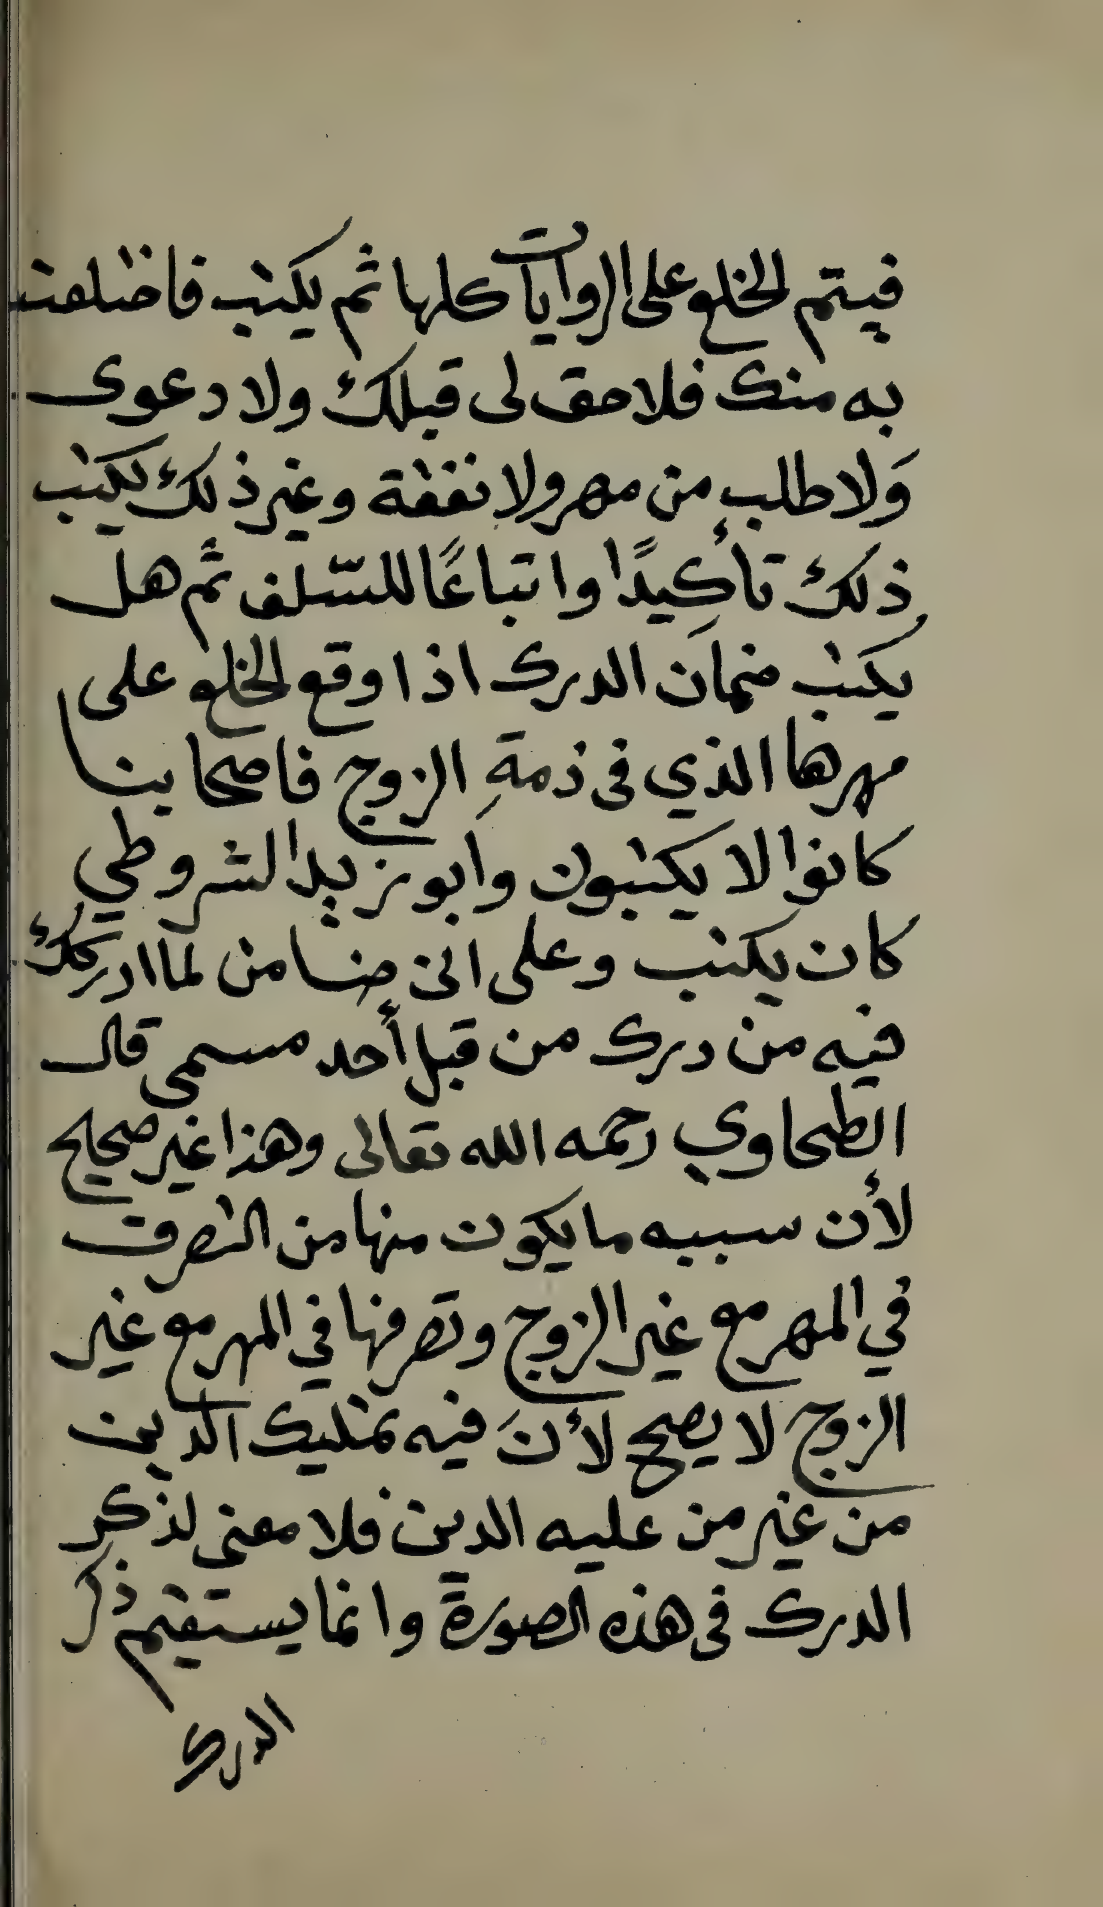 فيتم الخلع على الروايات كلها ثم يكتب فاختلعت
به منك فلا حق لى قبلك ولا دعوى
وَلا طلب من مهر ولا نفقة وغير ذلك يكتب
ذلك تأكيدًا واتباعًا للسّلف ثم هل
يكتب ضمان الدرك اذا وقع الخلع على
مهرها الذي فى ذمةِ الزوج فاصحابنا
كانوا لا يكتبون وابو زيد الشروطي
كان يكتب وعلى انى ضامن لما ادركك
فيه من درك من قبل أحد مسمى قال
الطحاوي رحمه الله تعالى وهذا غير صحيح
لأن سببه ما يكون منها من التصرف
في المهر مع غير الزوج وتصرفها في المهر مع غير
الزوج لا يصح لأنَ فيه تمليك الدين
من غير من عليه الدين فلا معنى لذكر
الدرك فى هذه الصورة وانما يستقيم ذكر
الدرك